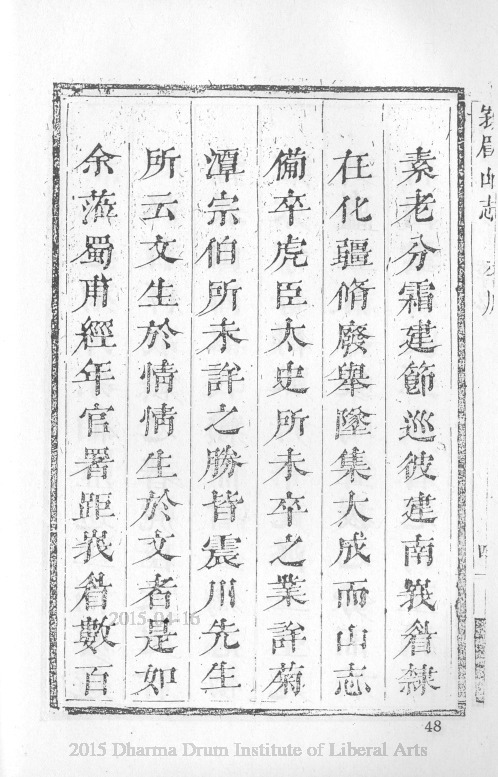 峩眉山志
素老分霜建節巡彼建南峩眉隸
在化疆脩廢舉墜集大成而山志
備卒虎臣太史所未卒之業詳菊
潭宗伯所未詳之勝皆震川先生
所云文生於情情生於文者是如
余蒞蜀甫經年官署距峩眉數百
48
2015-04-16
2015 Dharma Drum Institute of Liberal Arts